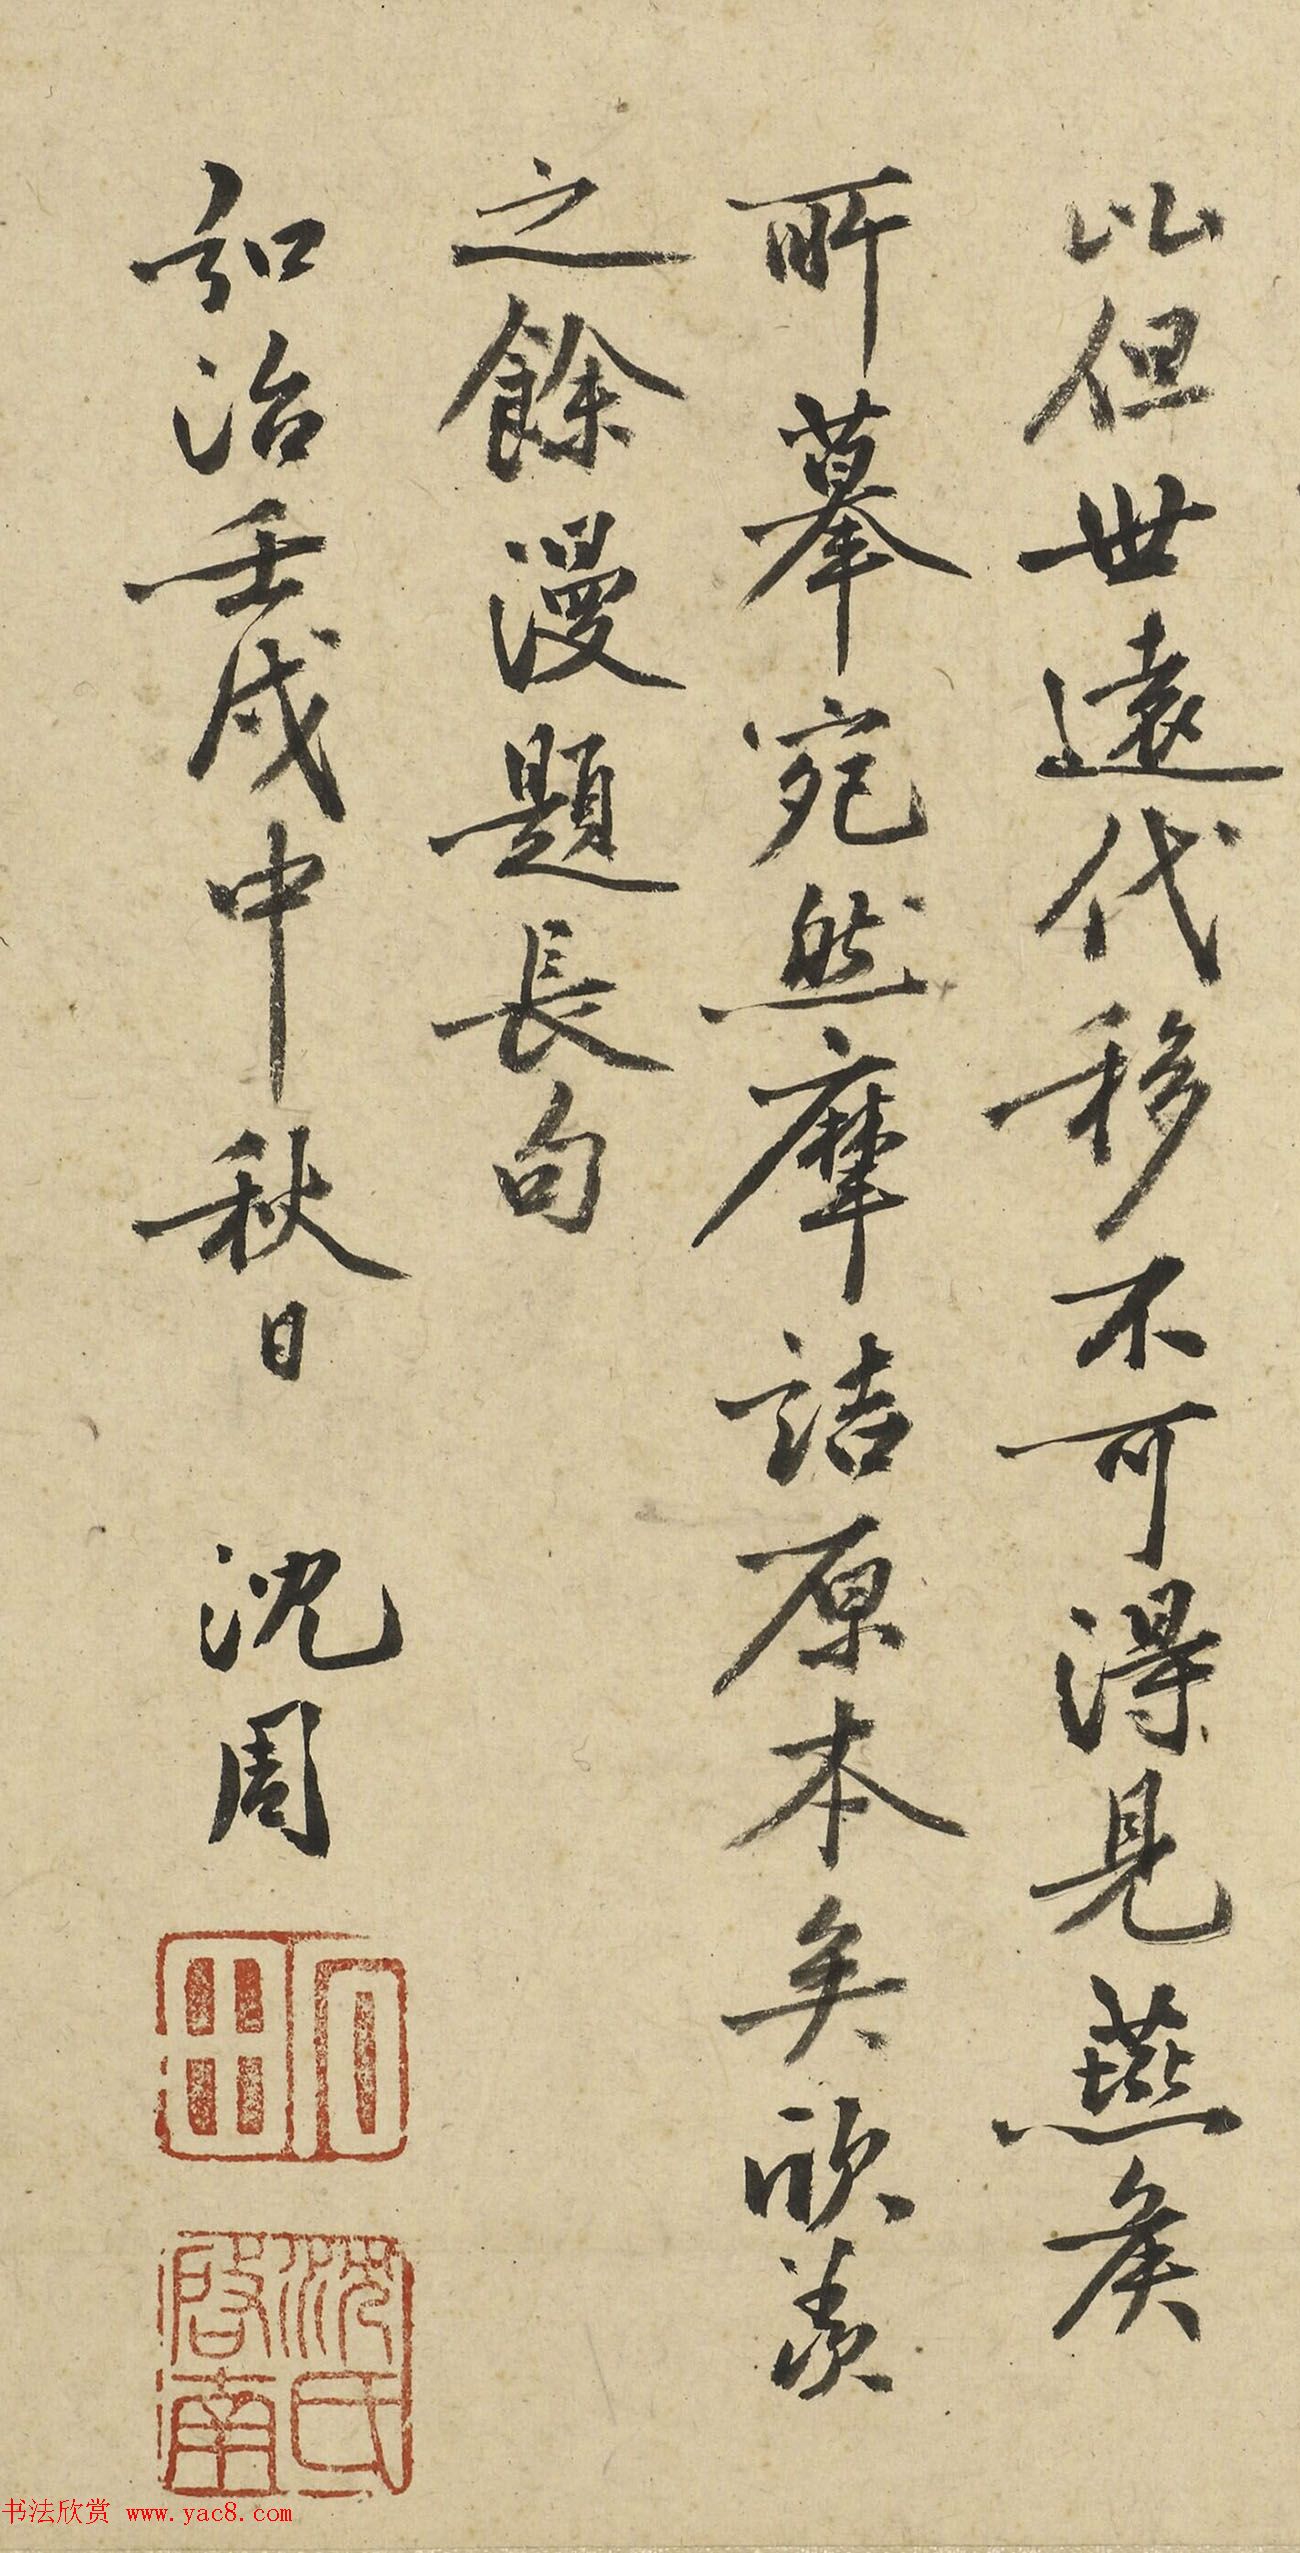 以但世遠代移不可得見燕矦
所摹宛然摩詰原本矣欣羡
之餘漫題長句
弘治壬戌中秋日 沈周
沈氏啓南
书法欣赏 www.yac8.com